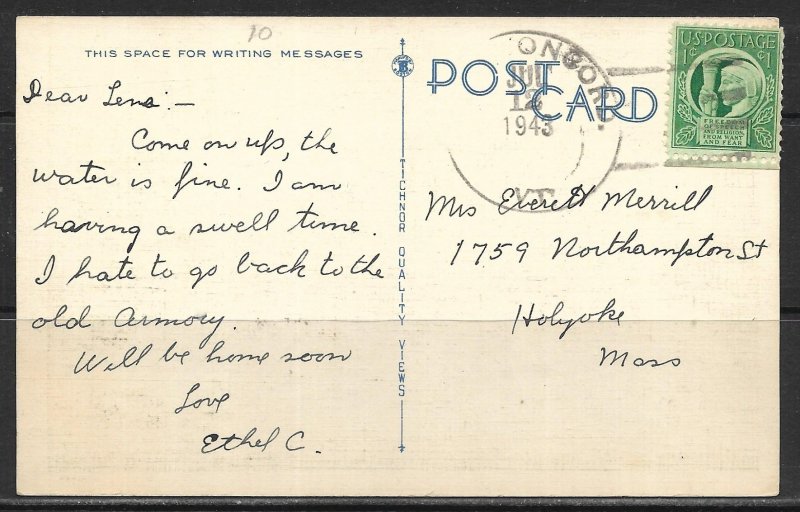 10
THIS SPACE FOR WRITING MESSAGES
Dear Lena:—
Come on up, the
water is fine. I am
having a swell time.
I hate to go back to the
old Armory.
Will be home soon
Love
Ethel C.
TICHNOR QUALITY VIEWS
POST CARD
ONBORO
JUL
12
1943
VT
U.S. POSTAGE
1¢ ¢1
FREEDOM
OF SPEECH
AND RELIGION,
FROM WANT
AND FEAR
Mrs Everett Merrill
1759 Northampton St
Holyoke
Mass